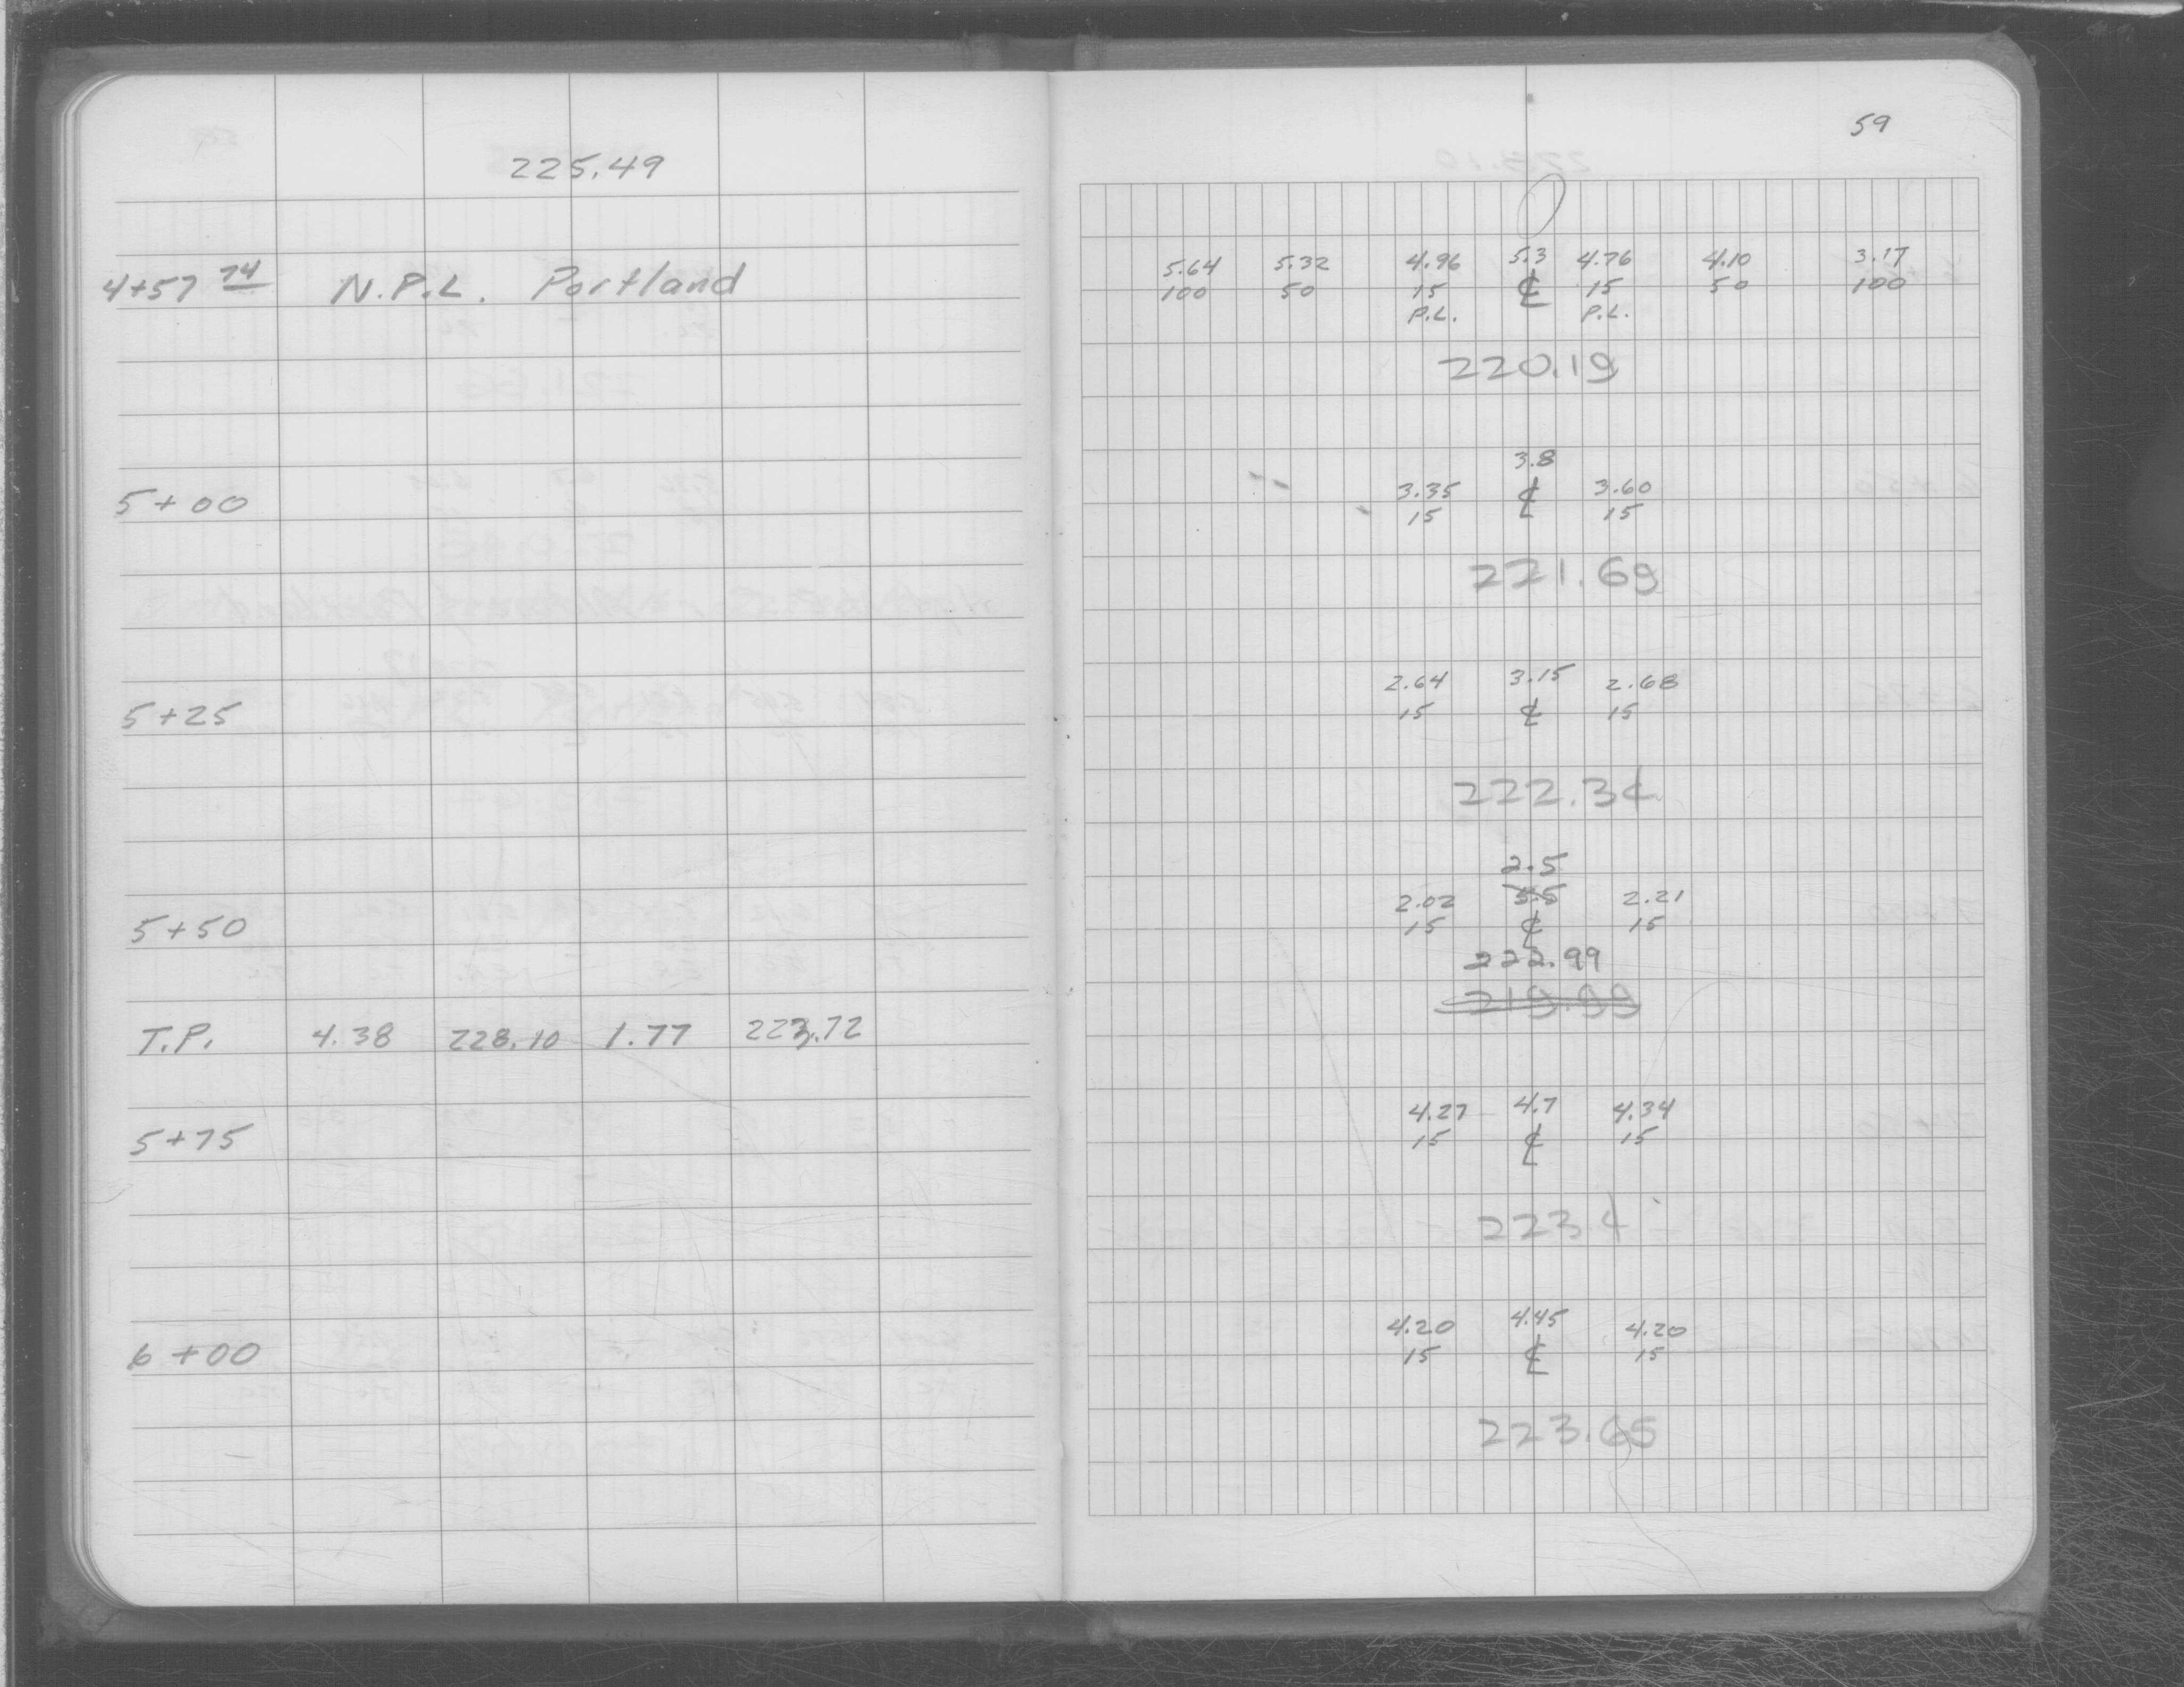 225.49
4+57 74 N.P.L. Portland
5+00
5+25
5+50
T.P. 4.38 228.10 1.77 223.72
5+75
6+00
59
5.64 5.32 4.96 5.3 4.76 4.10 3.17
100 50 15 ℄ 15 50 100
P.L. P.L.
220.19
3.8
3.35 ℄ 3.60
15 15
221.69
2.64 3.15 2.68
15 ℄ 15
222.34
2.5
2.02 5.5 2.21
15 ℄ 15
222.99
219.99
4.27 4.7 4.34
15 ℄ 15
223.4
4.20 4.45 4.20
15 ℄ 15
223.65